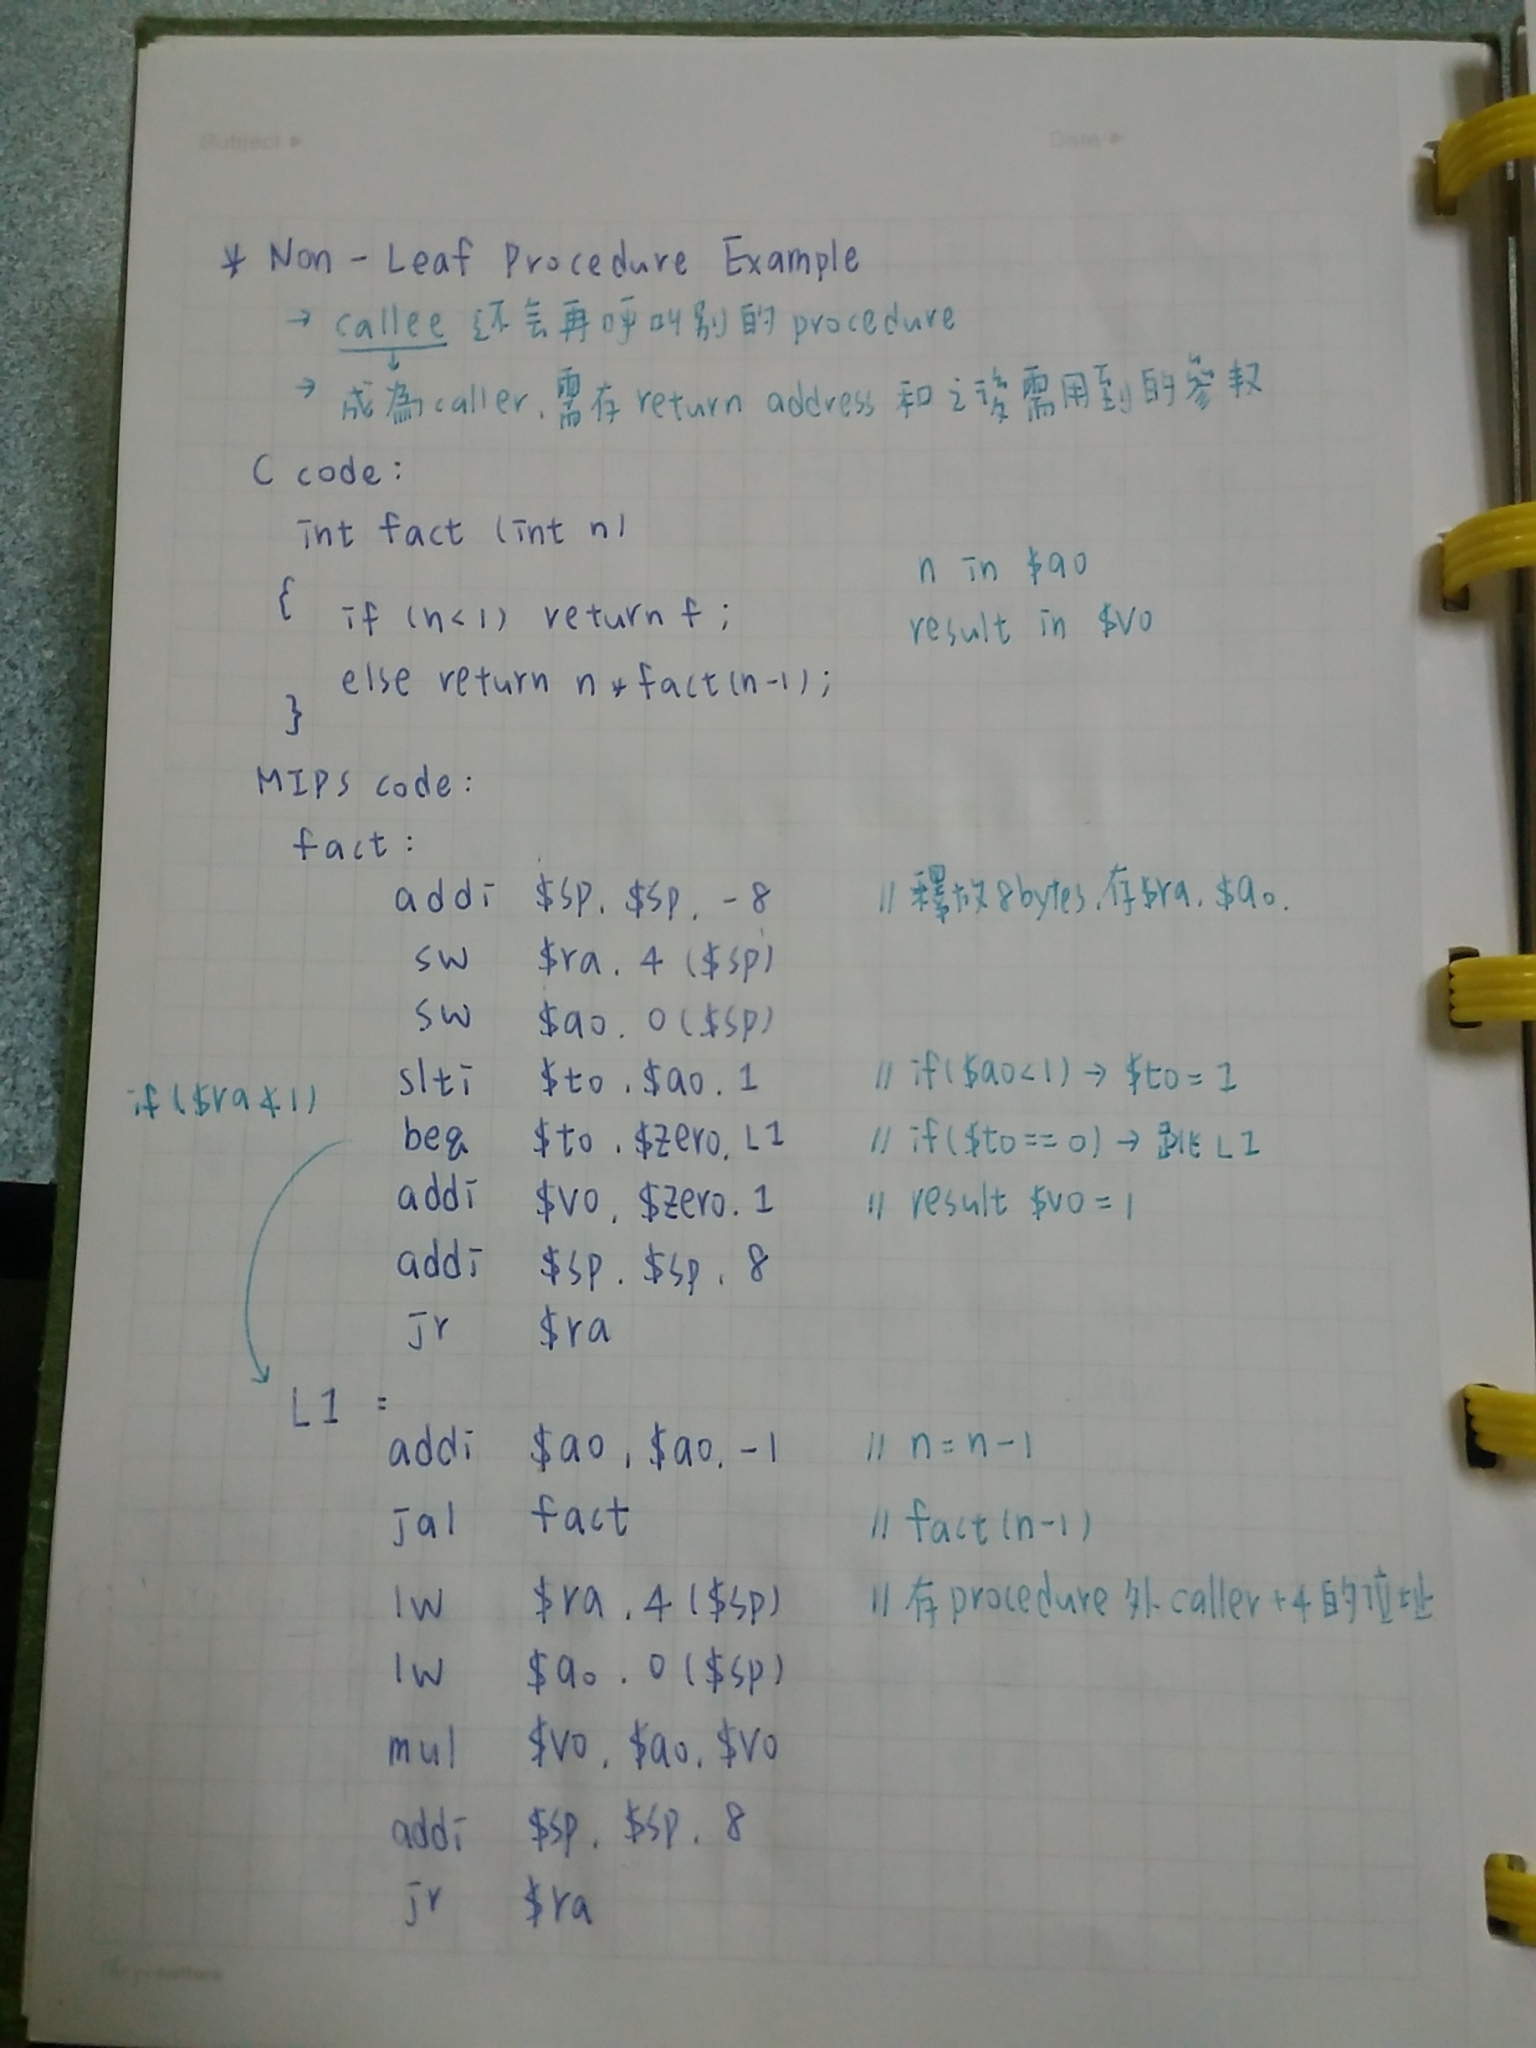 Subject ▸ Date ▸
* Non-Leaf Procedure Example
→ callee 还会再呼叫別的 procedure
→ 成為 caller, 需存 return address 和之後需用到的參數
C code:
int fact (int n)
n in $a0
{ if (n<1) return f;
result in $v0
else return n * fact(n-1);
}
MIPS code:
fact:
addi $sp, $sp, -8 // 釋放8bytes, 存$ra, $a0.
sw $ra, 4 ($sp)
sw $a0, 0($sp)
slti $t0, $a0, 1 // if($a0<1) → $t0=1
if($ra≮1)
beq $t0, $zero, L1 // if($t0==0) → 跳 L1
addi $v0, $zero, 1 // result $v0=1
addi $sp, $sp, 8
jr $ra
L1 :
addi $a0, $a0, -1 // n=n-1
jal fact // fact(n-1)
lw $ra, 4($sp) // 存procedure外caller+4的位址
lw $a0, 0($sp)
mul $v0, $a0, $v0
addi $sp, $sp, 8
jr $ra